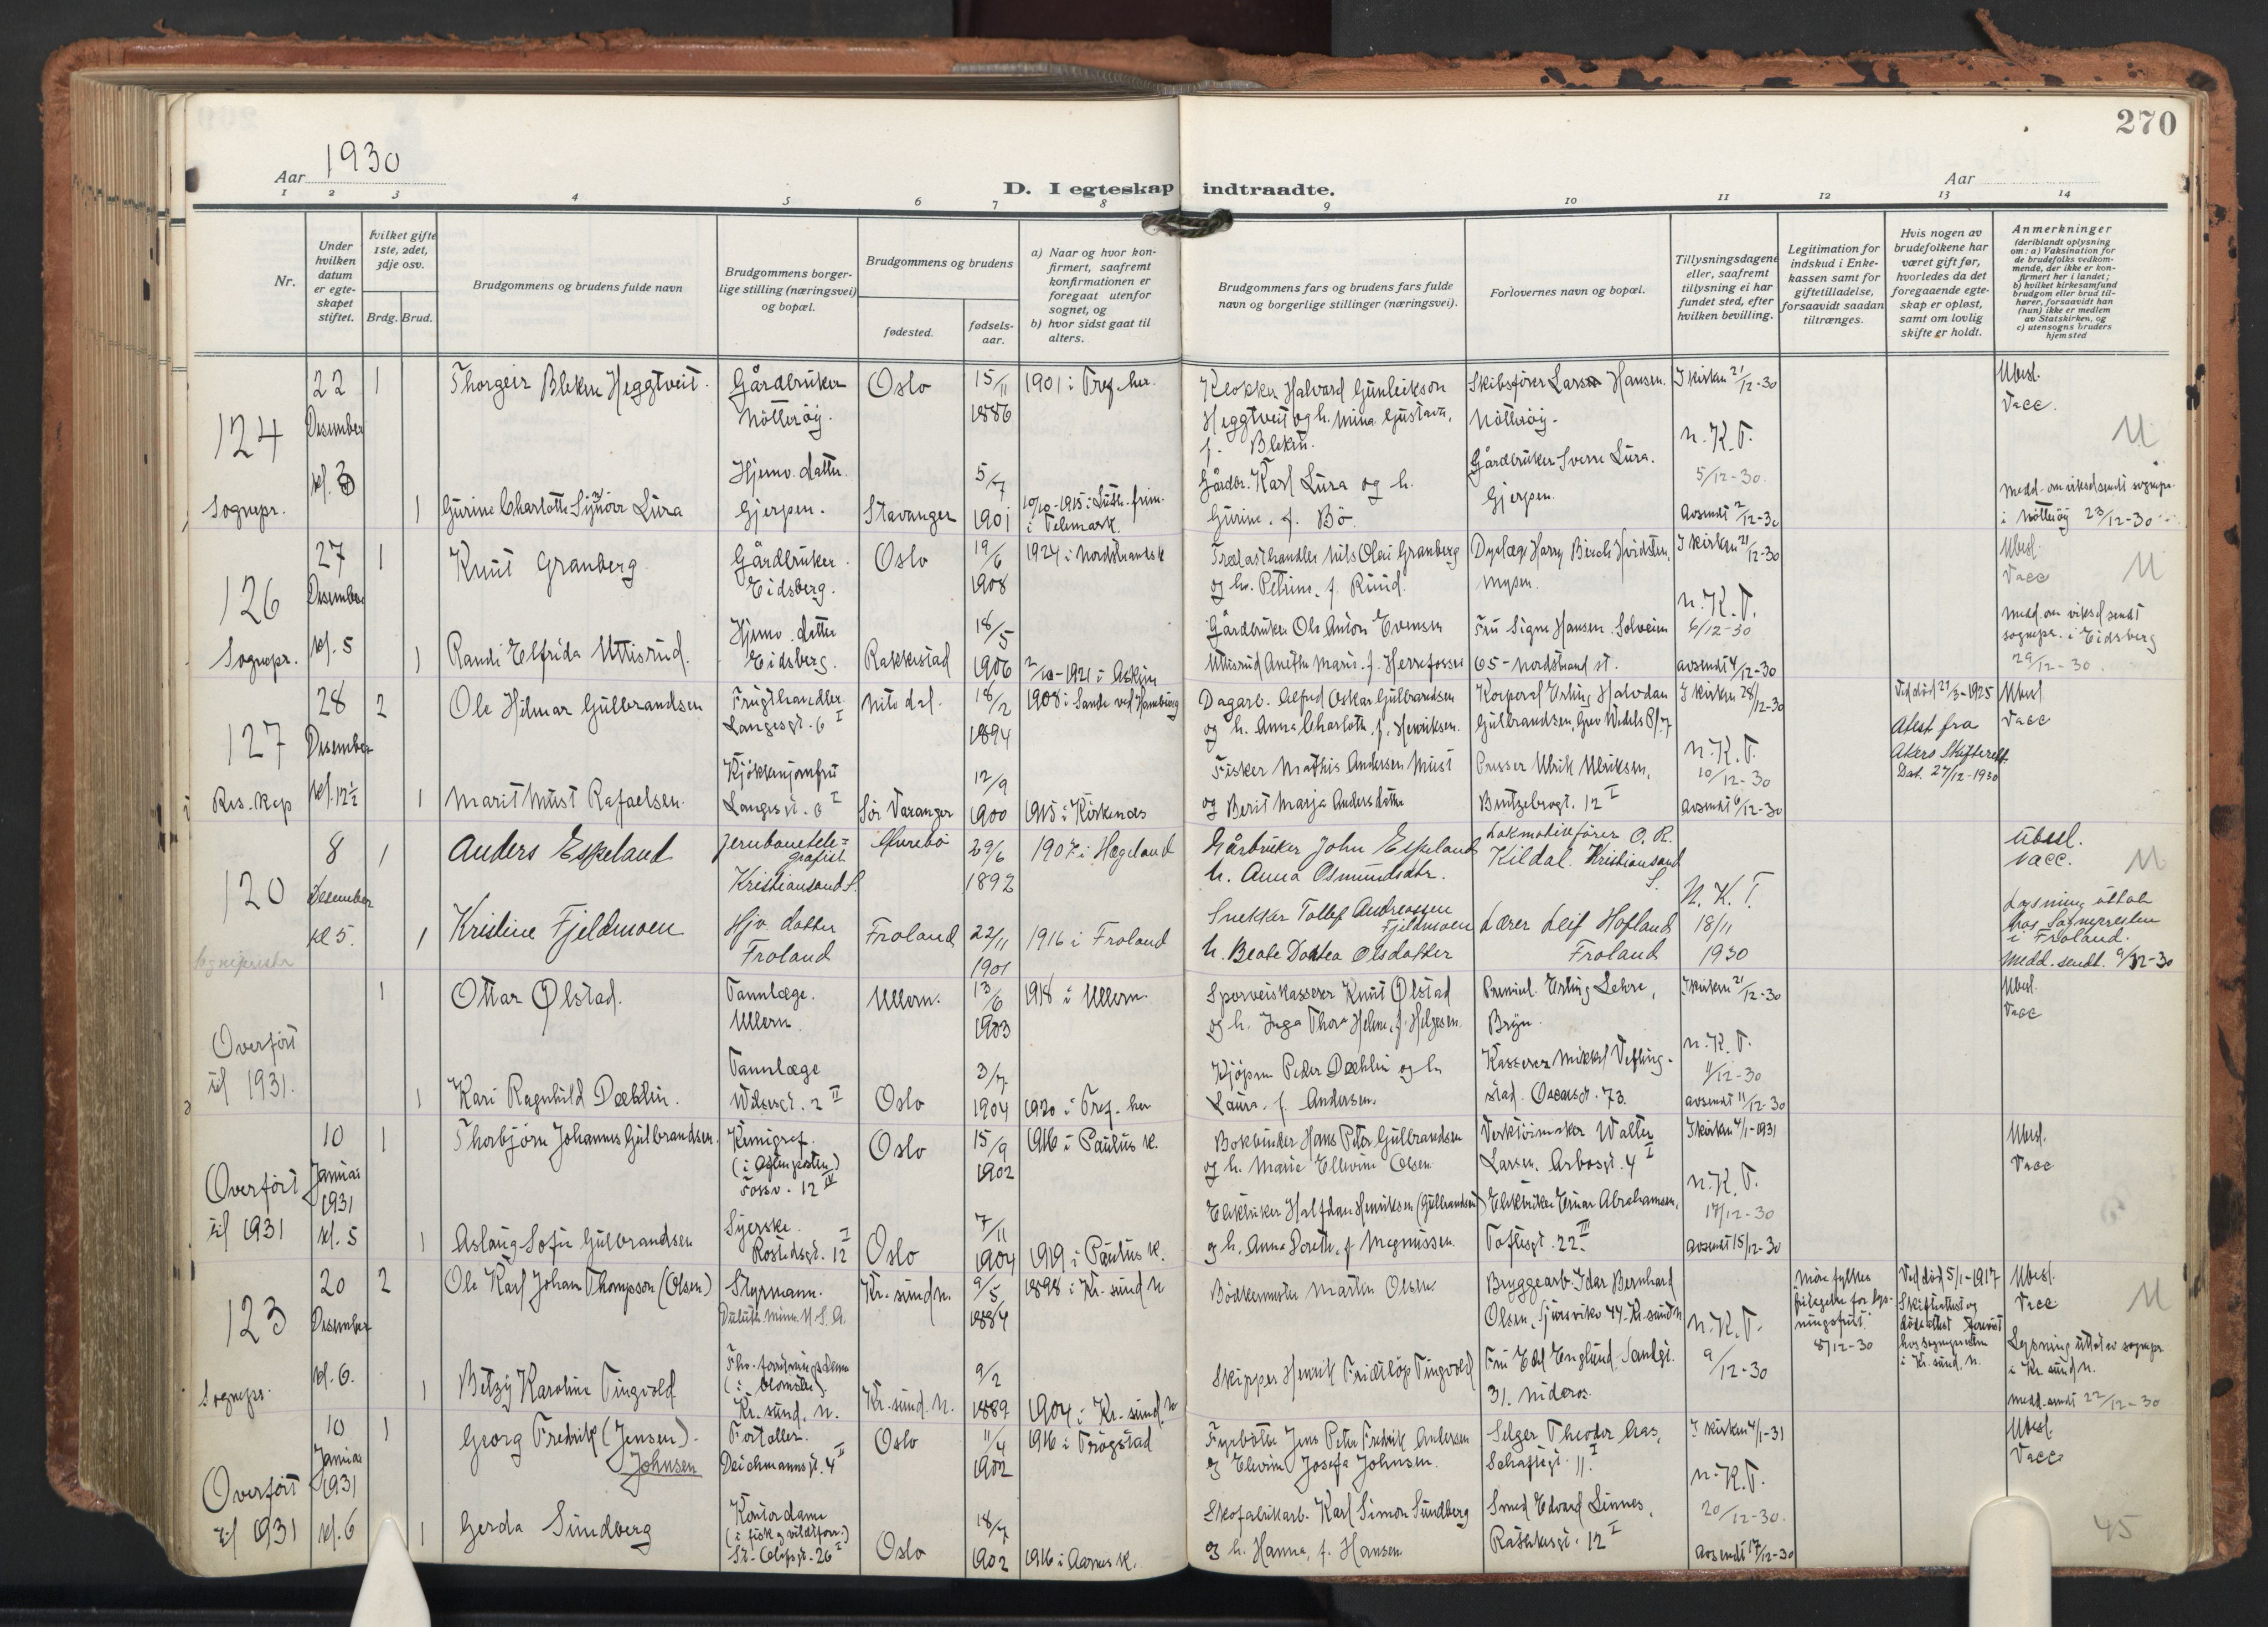 270
Aar 1930
D. I egteskap indtraadte.
Aar
1 2 3 4 5 6 7 8 9 10 11 12 13 14
Nr.
Under hvilken datum er egteskapet stiftet.
Hvilket gifte 1ste, 2det, 3dje osv.
Brdg. Brud.
Brudgommens og brudens fulde navn
Brudgommens borgerlige stilling (næringsvei) og bopæl.
Brudgommens og brudens
fødested.
fødselsaar.
a) Naar og hvor konfirmert, saafremt konfirmationen er foregaat utenfor sognet, og
b) hvor sidst gaat til alters.
Brudgommens fars og brudens fars fulde navn og borgerlige stillinger (næringsvei).
Forlovernes navn og bopæl.
Tillysningsdagene eller, saafremt tillysning ei har fundet sted, efter hvilken bevilling.
Legitimation for indskud i Enkekassen samt for giftetilladelse, forsaavidt saadan tiltrænges.
Hvis nogen av brudefolkene har været gift før, hvorledes da det foregaaende egteskap er opløst, samt om lovlig skifte er holdt.
Anmerkninger
(deriblandt oplysning om: a) Vaksination for de brudefolks vedkommende, der ikke er konfirmert her i landet; b) hvilket kirkesamfund brudgom eller brud tilhører, forsaavidt han (hun) ikke er medlem av Statskirken, og c) utensogns bruders hjemsted
124
Sognepr.
22 Desember kl. 3
1 Thorgeir Bleken Heggtveit.
Gårdbruker Nötteröy.
Oslo
15/11 1886
1901 i Tref. her.
Klokker Halvard Gunleikson
Heggtveit og h. Mina Gustava,
f. Bleken.
Skibsfører Lars Hansen.
Nötteröy.
I kirken 21/12-30
n. K. T.
5/12-30.
Avsendt 2/12-30
Ubesl.
Vacc.
M
1 Gurine Charlotte Synöve Lura
Hjemv. datter
Gjerpen.
Stavanger
5/7 1901
10/10-1915 i Luth. frim.
i Telemark.
Gårdbr. Karl Lura og h.
Gurine, f. Bö.
Gårdbruker Sverre Lura.
Gjerpen.
Medd. om vielsel sendt sognepr.
i Nötteröy 23/12-30
126
Sognepr.
27 Desember kl. 5
1 Knut Granberg
Gårdbruker
Eidsberg.
Oslo
19/6 1908
1924 i Nordstrands k
Trælasthandler Nils Olai Granberg
og h. Petrine, f. Ruud.
Dyrlæge Harry Birch Hvidsten,
Mysen.
I kirken 21/12-30
n. K. T.
6/12-30
avsendt 4/12-30
Ubesl.
Vacc
M
1 Randi Elfrida Uttisrud.
Hjemv. datter
Eidsberg.
Rakkestad
18/5 1906
2/10-1921 i Askim
Gårdbruker Ole Anton Evensen
Uttisrud Anethe Marie, f. Herrefosser
Fru Signe Hansen. Solveien
65 - Nordstrand st.
Medd. om vielsel sendt
sognepr. i Eidsberg
29/12-30.
127
Res. Kap
28 Desember kl. 12½
2 Ole Hilmar Gulbrandsen
Frugthandler
Langesgt. 6 I
Nitedal.
18/2 1894
1908 i Sande ved Hamburg
Dagarb. Alfred Oskar Gulbrandsen
og h. Anna Charlotte, f. Henriksen.
Korporal Erling Halvdan
Gulbrandsen, Grev Wedels Pl. 7
I kirken 28/12-30
n. K. T.
10/12-30
avsendt 6/12-30
Ved död 21/3-1925
Atest fra
Akers Skifterett
Dat. 27/12-1930
Ubesl
Vacc
1 Marit Must Rafaelsen
Kjökkenjomfru
Langes gt. 6 I
Sör Varanger
12/9 1900
1915 i Kirkenes
Fisker Mathis Andersen Must
og Berit Marja Andersdatter
Presser Ulrik Ulriksen,
Bentzebrogt. 12 I
120
Sognepresten
8 Desember kl 5.
1 Anders Espeland
Jernbanetelegrafist
Kristiansand S.
Øvrebö
29/6 1892
1907 i Hægeland
Gårbruker John Espeland
h. Anna Osmundsdtr.
Lokomotivförer O. R.
Kildal. Kristiansand S.
N. K. T.
18/11
1930
Ubesl.
Vacc.
M
1 Kristine Fjeldmoen
Hjv. datter
Froland
Froland
22/11 1901
1916 i Froland
Snekker Tollef Andreassen
Fjeldmoen
h. Beate Dortea Olsdatter
Lærer Leif Hofland
Froland
Lysning uttat
hos Sognepresten
i Froland.
Medd. sendt. 9/12-30
Overfört
til 1931.
1 Ottar Ølstad.
Tannlæge.
Ullern.
Ullern.
13/6 1903
1918 i Ullern.
Sporveiskasserer Knut Ølstad
og h. Inga Thora Helene, f. Helgesen.
Premierl. Erling Lehre,
Bryn.
I kirken 21/12-30
n. K. T.
11/12-30
avsendt 11/12-30
Ubesl.
Vacc
1 Kari Ragnhild Dæhlin.
Tannlæge
Wilsesgt. 2 II
Oslo
3/7 1904
1920 i Tref. her
Kjöpm Peder Dæhlin og h
Laura, f. Andersen.
Kasserer Mikkel Vefling-
stad. Oscarsgt. 73.
Overfört
til 1931
10 Januar 1931 kl. 5
1 Thorbjörn Johannes Gulbrandsen
Kemigraf.
(i Aftenposten)
Fossv. 12 IV
Oslo
15/9 1902
1916 i Paulus k.
Bokbinder Hans Peter Gulbrandsen
og h. Marie Ellevine Olsen
Verktöimaker Walter
Larsen, Arbosgt. 4 I
I kirken 4/1-1931
n. K. T.
17/12-30
avsendt 15/12-30
Ubesl.
Vacc
1 Aslaug Sofie Gulbrandsen
Syerske.
Rostedsgt. 12 I
Oslo
7/11 1904
1919 i Paulus k.
Elektriker Halfdan Henriksen (Gulbrandsen)
og h. Anna Dorethe, f. Magnussen.
Elektriker Einar Abrahamsen,
Toftesgt. 22 III
123
Sognepr.
20 Desember kl. 6.
2 Ole Karl Johan Thompson (Olsen)
Styrmann.
Duluth. Minn. U. S. A.
Kr. sund n.
9/5 1884
1898 i Kr. sund n
Bödkermester Martin Olsen.
Bryggearb. Idar Bernhard
Olsen, 44 - Kr. sund n
n. K. T.
9/12-30
Möre fylkes
fritagelse for lys-
ningsfrist.
8/12-30
Ved död 5/1-1917
Skifteattest og
dödsattest forevist
hos sognepresten
i Kr. sund. n.
Ubesl.
Vacc
M
1 Betzy Karoline Tingvold
Fhv. forretningsdame
(i blomster).
Kr. sund, n.
Kr. sund. n.
9/2 1889
1904 i Kr. sund. n
Skipper Henrik Fridtløp Tingvold
Fru Edel Englund. Sandgt.
31. Nidaros.
Lysning uttatt av sognepr.
i Kr. sund n.
medd. sendt 22/12-30
Overfört
til 1931
10 Januar 1931 kl. 6
1 Georg Fredrik (Jensen).
Johnsen
Fortoller.
Deichmannsgt. 4 II
Oslo
11/4 1902
1916 i Trögstad
Fyrböter Jens Peter Fredrik Andersen
og Elevine Josefa Johnsen.
Selger Theodor Aas,
Schaftesgt. 11. I
I kirken 4/1-31
n. K. T.
20/12-30.
Avsendt 17/12-30
Ubesl
Vacc
1 Gerda Sundberg
Kontordame
(i fisk og vildtforr.)
St. Olafsgt. 26 I
Oslo
18/7 1902
1916 i Aamis k.
Skofabrikarb. Karl Simon Sundberg
og h. Hanna, f. Hansen
Smed Edvard Linnes,
Rathkesgt. 12 I
45